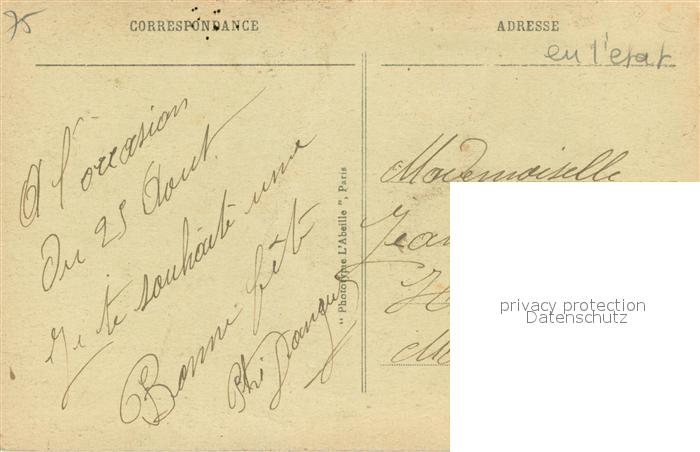 75
CORRESPONDANCE
ADRESSE
en l'etat
A l'occasion
Du 25 Aout
Je te souhaite une
Bonne fête
" Phototypie L'Abeille ", Paris
Mademoiselle
privacy protection
Datenschutz